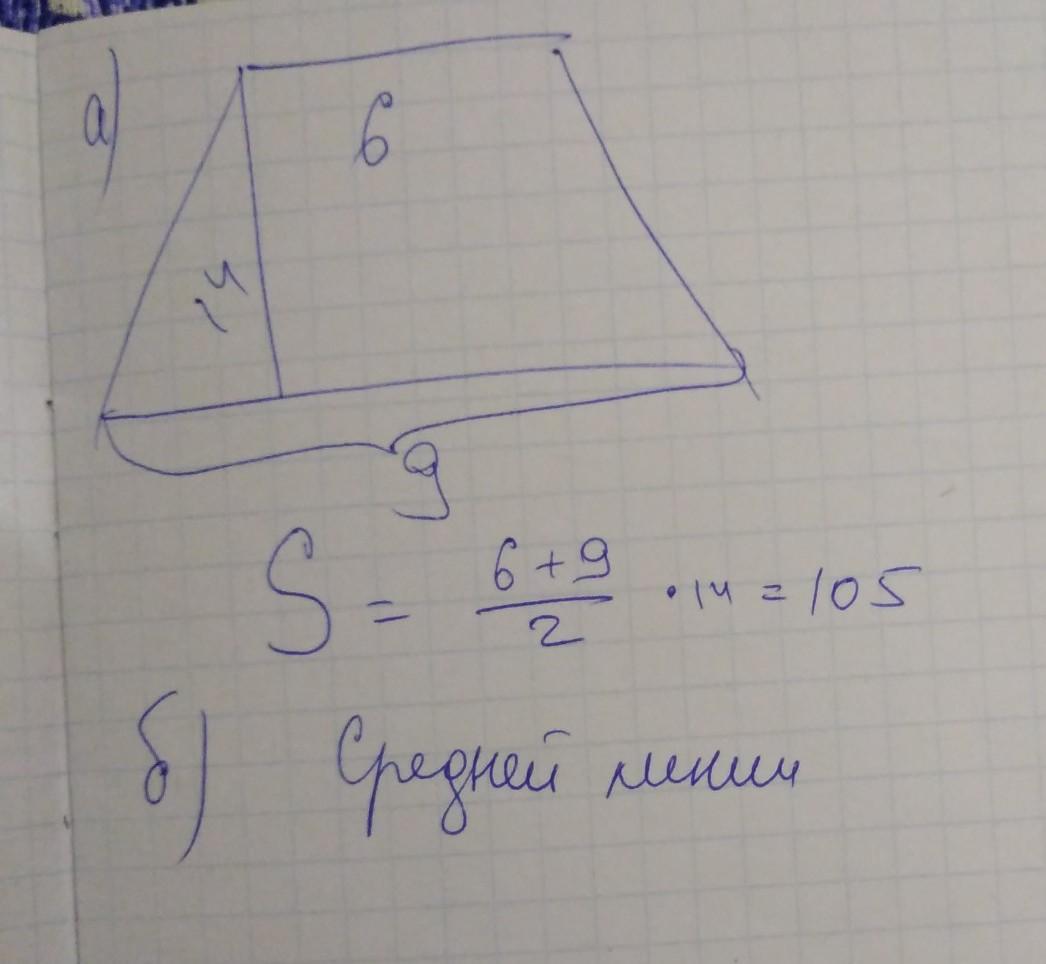 а)
6
14
9
S = 6+9/2 · 14 = 105
б) Средней линии